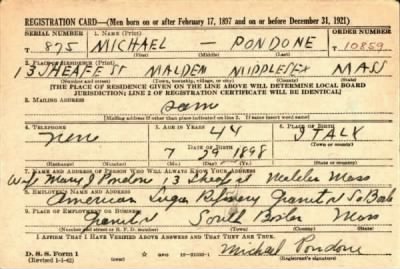 REGISTRATION CARD—(Men born on or after February 17, 1897 and on or before December 31, 1921)
SERIAL NUMBER 1. NAME (Print) ORDER NUMBER
T 875 MICHAEL — PONDONE 10859
2. PLACE OF RESIDENCE (Print)
13 SHEAFE ST MALDEN MIDDLESEX MASS
(Number and street) (Town, township, village, or city) (County) (State)
[THE PLACE OF RESIDENCE GIVEN ON THE LINE ABOVE WILL DETERMINE LOCAL BOARD
JURISDICTION; LINE 2 OF REGISTRATION CERTIFICATE WILL BE IDENTICAL]
3. MAILING ADDRESS
Same
[Mailing address if other than place indicated on line 2. If same insert word same]
4. TELEPHONE 5. AGE IN YEARS 6. PLACE OF BIRTH
none 44 ITALY
DATE OF BIRTH (Town or county)
7 29 1898
(Exchange) (Number) (Mo.) (Day) (Yr.) (State or country)
7. NAME AND ADDRESS OF PERSON WHO WILL ALWAYS KNOW YOUR ADDRESS
Wife Mary Pondone 13 Sheafe st Malden Mass
8. EMPLOYER'S NAME AND ADDRESS
American Sugar Refinery Granite st So
9. PLACE OF EMPLOYMENT OR BUSINESS
Granite st South Boston Mass
(Number and street or R. F. D. number) (Town) (County) (State)
I AFFIRM THAT I HAVE VERIFIED ABOVE ANSWERS AND THAT THEY ARE TRUE.
D. S. S. Form 1
(Revised 1-1-42) GPO 16—21630-1 Michael Pondone
(Registrant's signature)